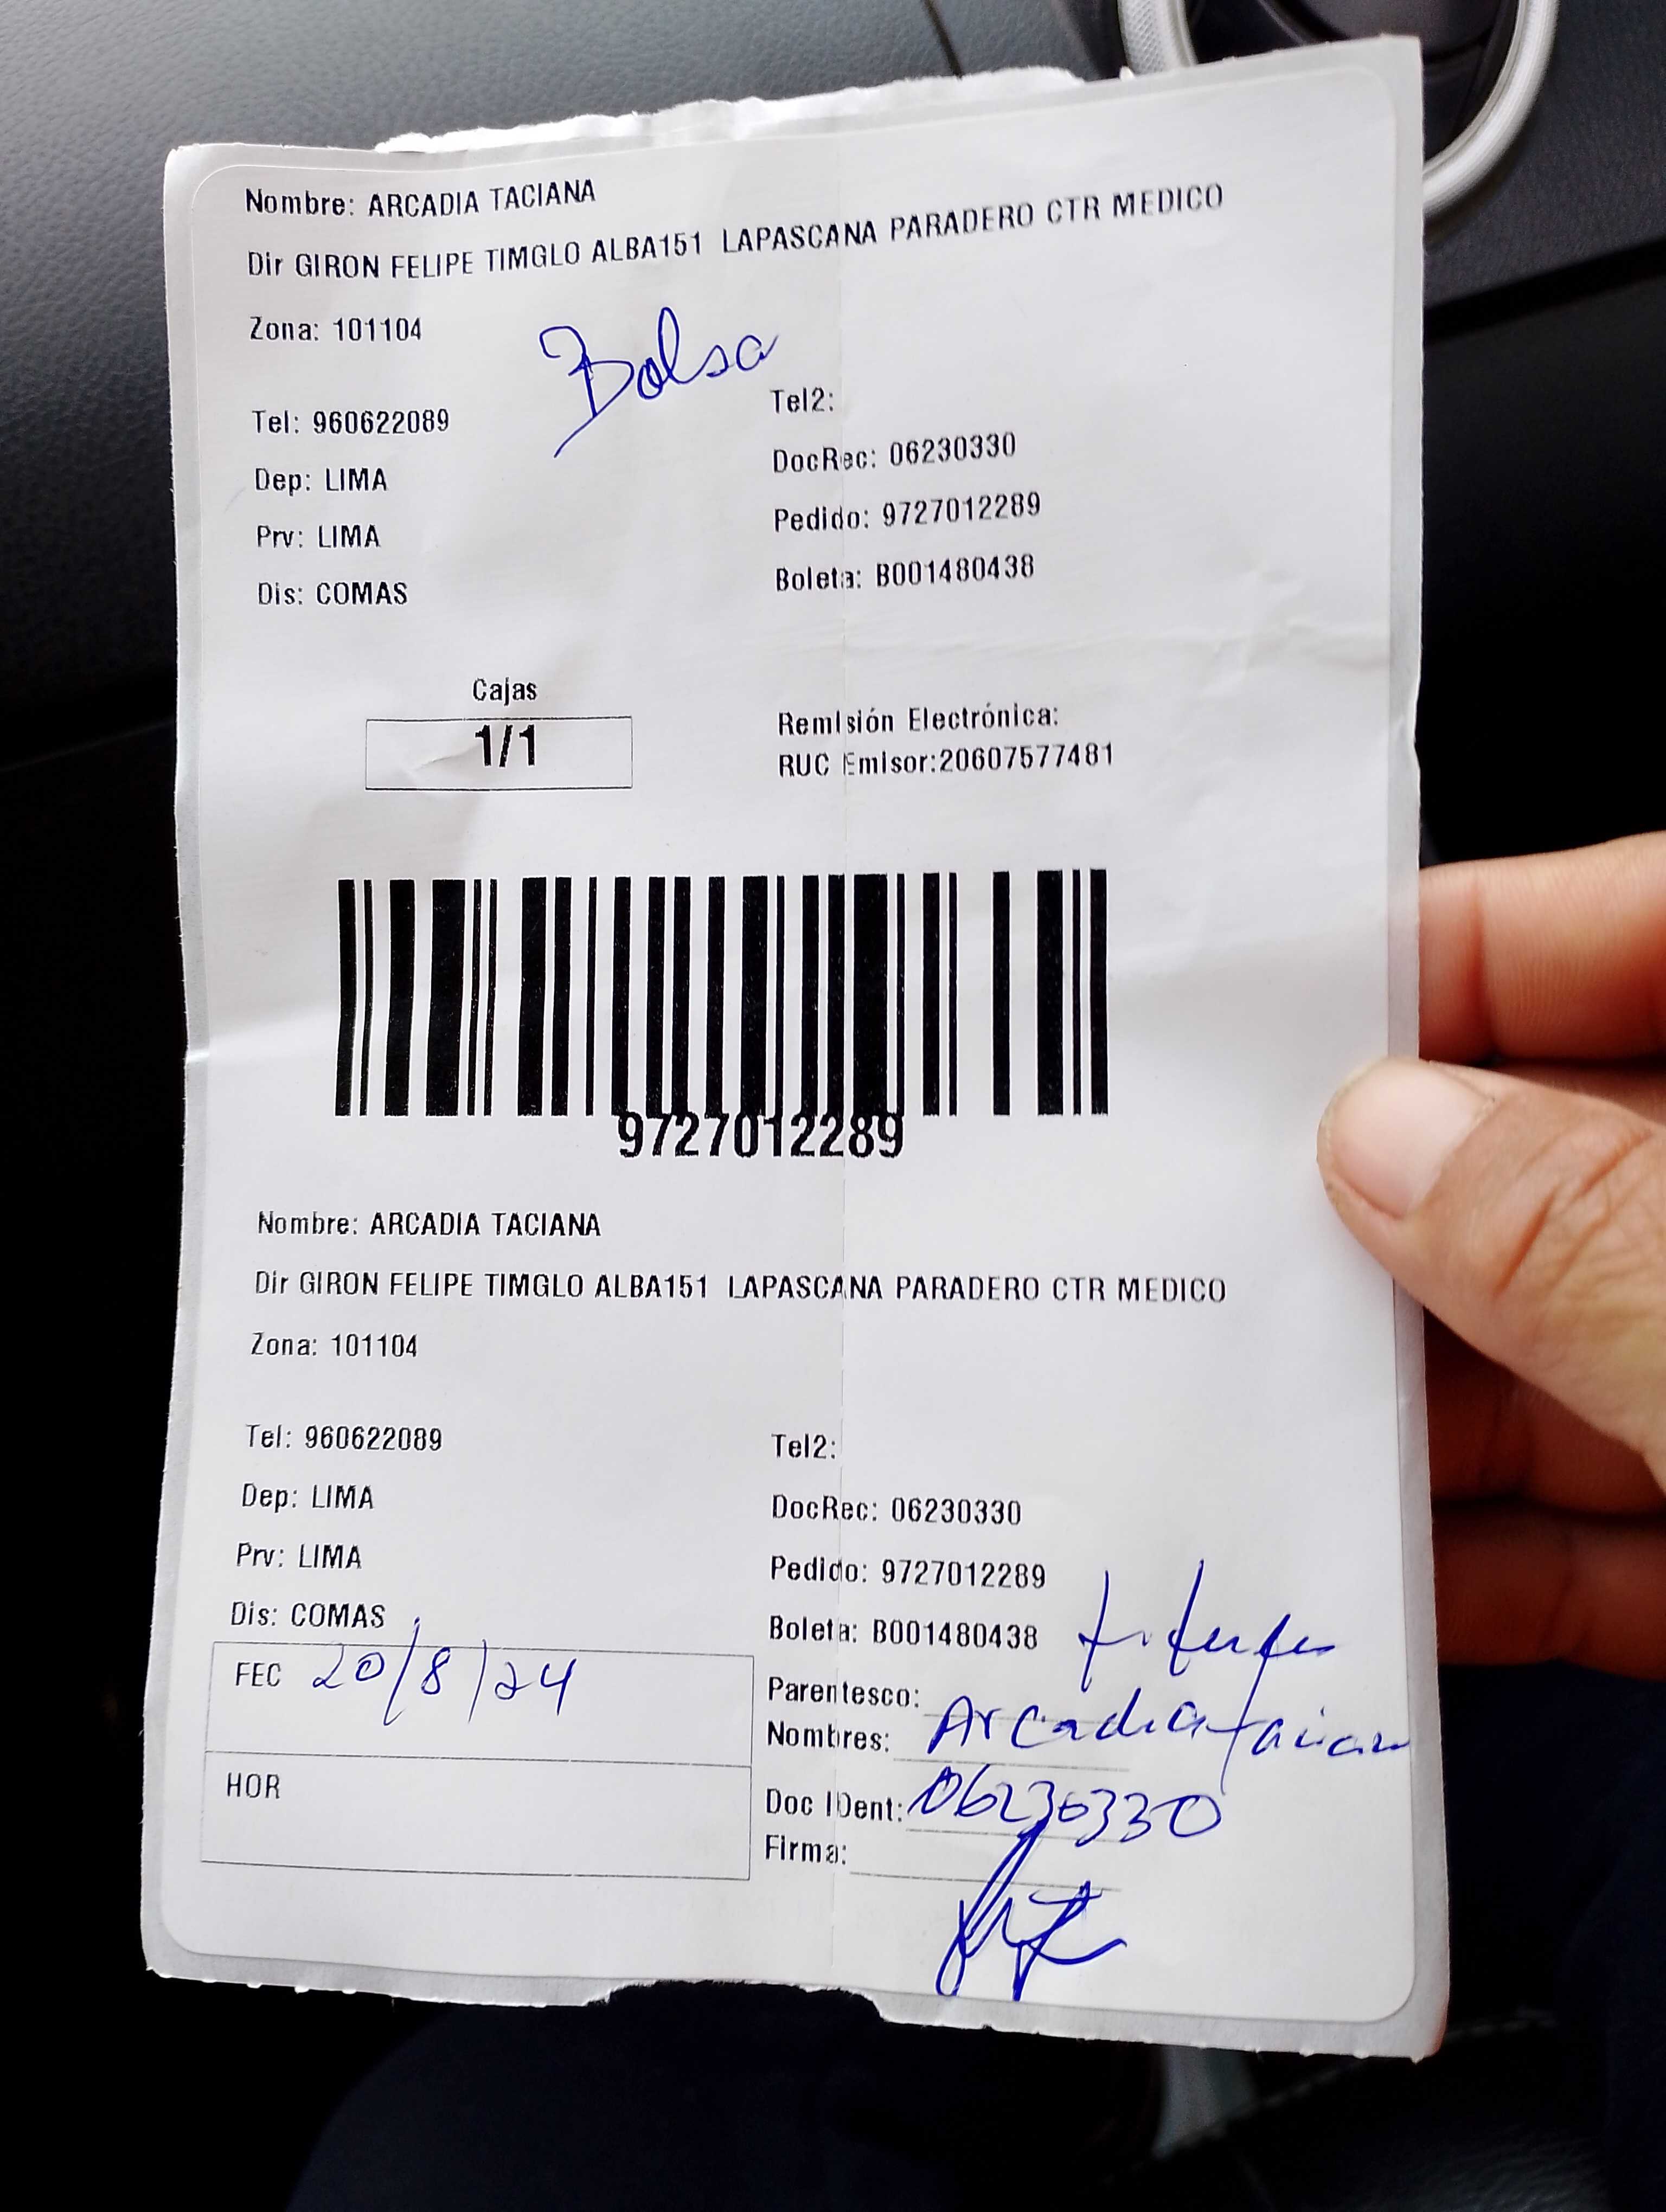 Nombre: ARCADIA TACIANA
Dir GIRON FELIPE TIMGLO ALBA151 LAPASCANA PARADERO CTR MEDICO
Zona: 101104
Bolsa
Tel: 960622089
Tel2:
Dep: LIMA
DocRec: 06230330
Prv: LIMA
Pedido: 9727012289
Dis: COMAS
Boleta: B001480438
Cajas
1/1
Remisión Electrónica:
RUC Emisor:20607577481
9727012289
Nombre: ARCADIA TACIANA
Dir GIRON FELIPE TIMGLO ALBA151 LAPASCANA PARADERO CTR MEDICO
Zona: 101104
Tel: 960622089
Tel2:
Dep: LIMA
DocRec: 06230330
Prv: LIMA
Pedido: 9727012289
Dis: COMAS
Boleta: B001480438
FEC 20/8/24
Parentesco:
Nombres: Arcadia
HOR
Doc IDent: 06230330
Firma: